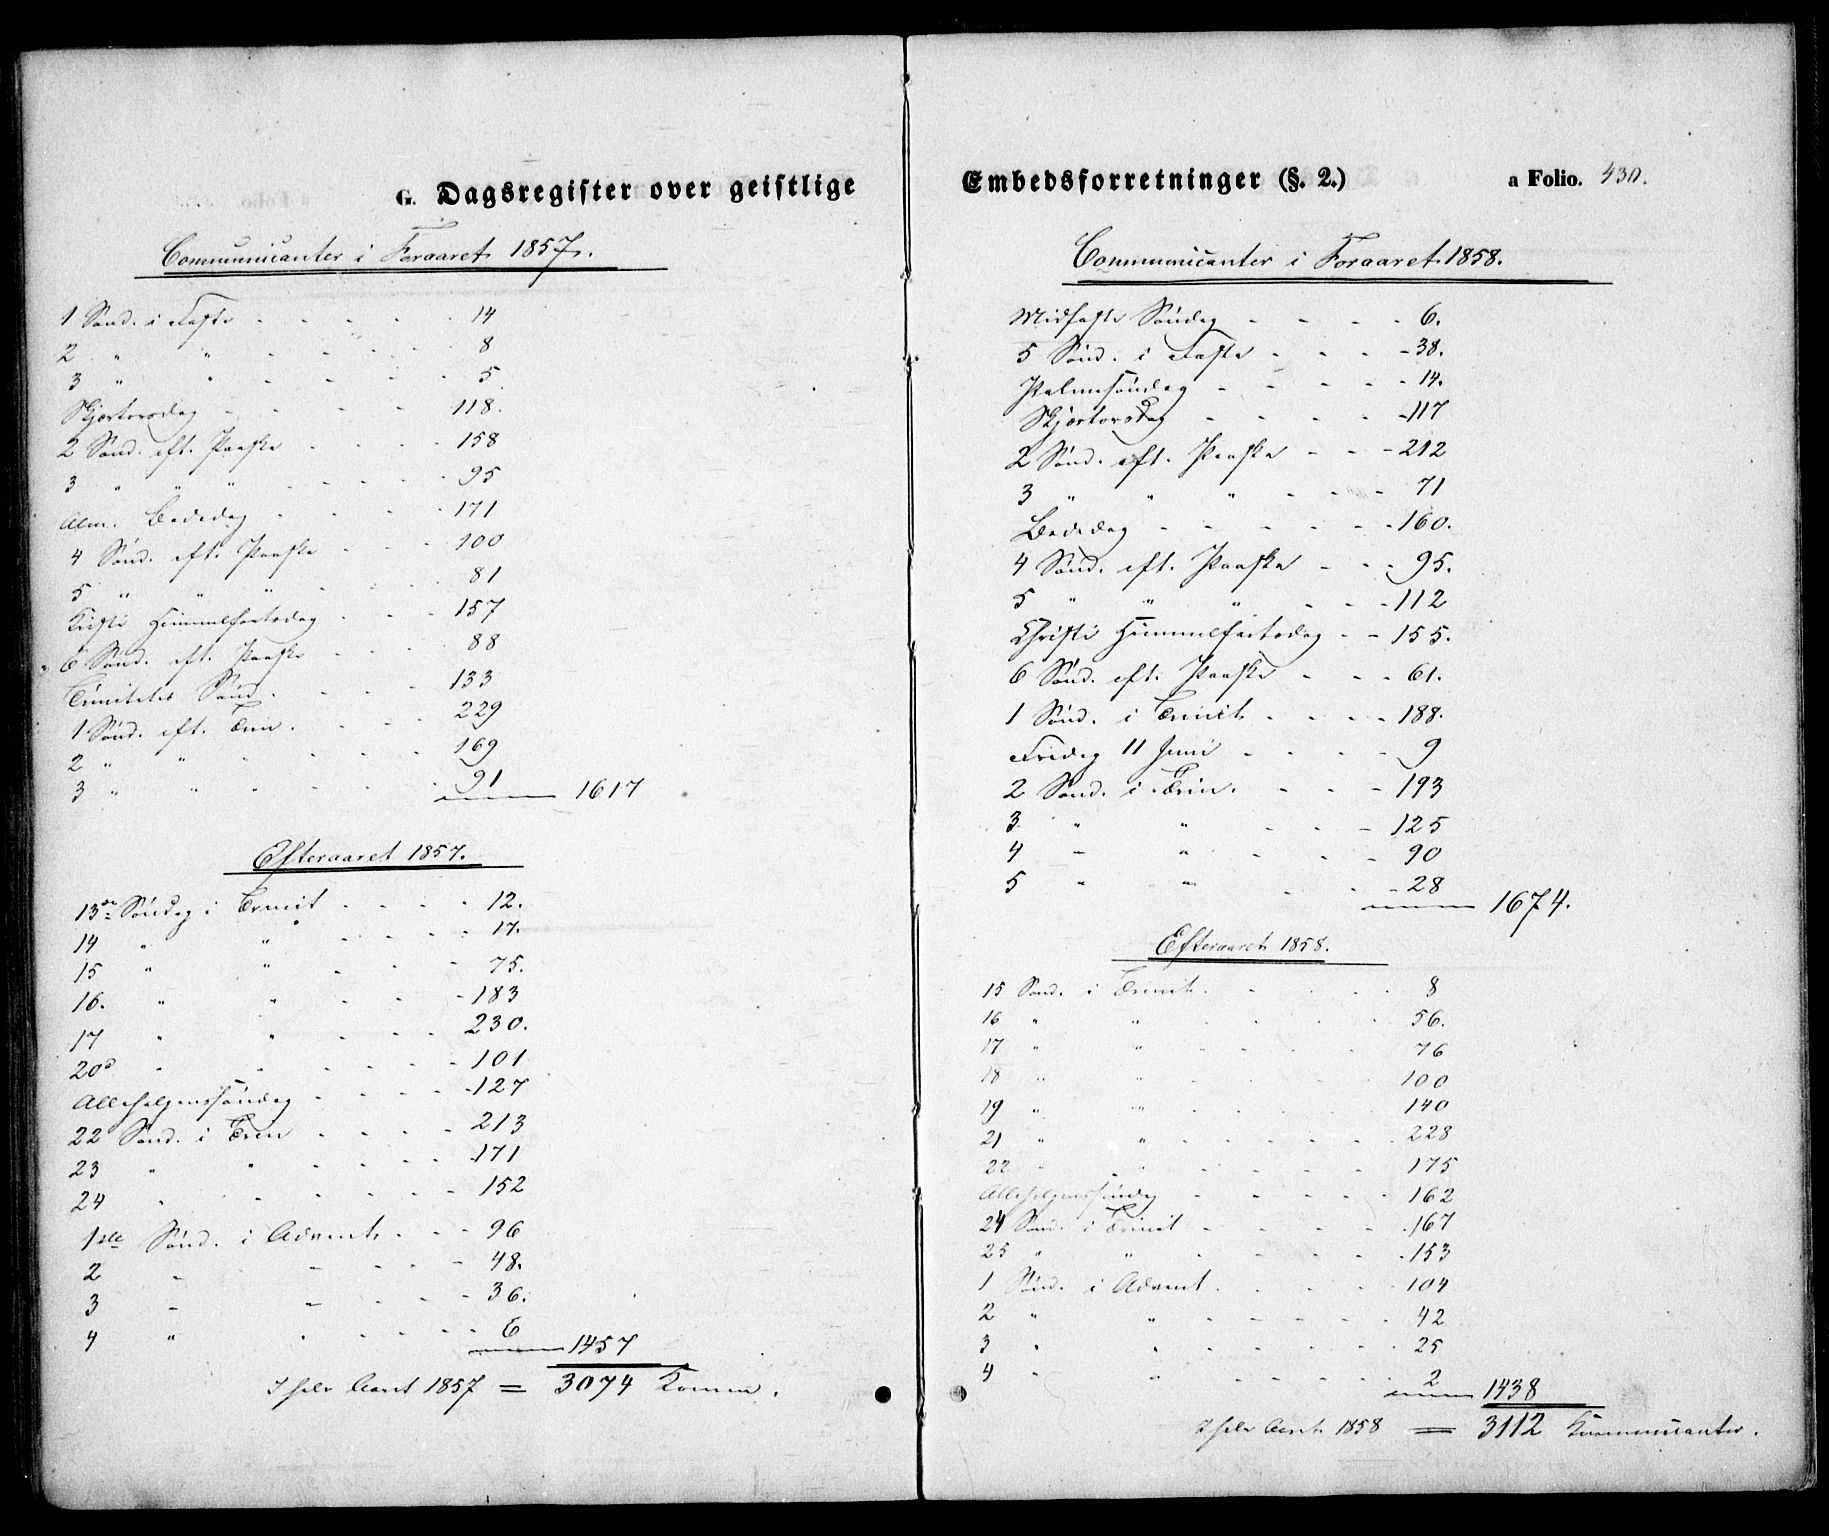 G. Dagsregister over geistlige
Communicanter i Foraaret 1857.
1 Sønd. i Faste - - - - - 14
2 " " - - - - - 8
3 " " - - - - - 5
Skjærtorsdag - - - - - 118.
2 Sønd. eft. Paaske - - - - 158
3 " " " - - - - 95
Alm. Bededag - - - - 171
4 Sønd. eft. Paaske - - - 100
5 " " " - - - 81
Kristi Himmelfartsdag - - - 157
6 Sønd. eft. Paaske - - - 88
Trinitatis Sønd. - - - 133
1 Sønd. eft. Trin. - - - 229
2 " " - - - - 169
3 " " " - - - 91 1617
Efteraaret 1857.
13de Søndag i Trinit - - - - 12.
14 " " - - - - 17.
15 " " - - - 75.
16. " " - - - 183
17 " " - - - 230.
20d " " - - - 101
Allehelgenssøndag - - - - 127
22 Sønd. i Trin - - - - 213
23 " " - - - - 171
24 " " - - - - 152
1ste Sønd. i Advent - - - 96
2 " - - - - 48.
3 " - - - - 36.
4 " " - - - - 6 1457
I hele Aaret 1857 = 3074 Komm.
Embedsforretninger (§. 2.) a Folio. 430.
Communicanter i Foraaret 1858.
Midfaste Søndag - - - - 6.
5 Sønd. i Faste - - - 38.
Palmesøndag - - - - 14.
Skjærtorsdag - - - - 117
2 Sønd. eft. Paaske - - - 212
3 " " " - - - 71
Bededag - - - - - 160.
4 Sønd. eft. Paaske - - - 95.
5 " " " - - - 112
Christi Himmelfartsdag - - 155.
6 Sønd. eft. Paaske - - - 61.
1 Sønd. i Trinit - - - - 188.
Fredag 11 Juni - - - - 9
2 Sønd. i Trin. - - - 193
3 " " - - - 125
4 " " - - - 90
5 " " - - - 28 1674.
Efteraaret 1858.
15 Sønd. i Trinit. - - - - 8
16 " " - - - - 56.
17 " " - - - - 76
18 " " - - - - 100
19 " " - - - - 140
21 " " - - - - 228
22 " " - - - - 175
Allehelgenssøndag - - - - 162
24 Sønd. i Trinit - - - - 167
25 " " - - - - 153
1 Sønd. i Advent. - - - - 104
2 " " - - - - 42
3 " " - - - - 25
4 " " - - - - 2 1438
I hele Aaret 1858 = 3112 Kommunicanter.